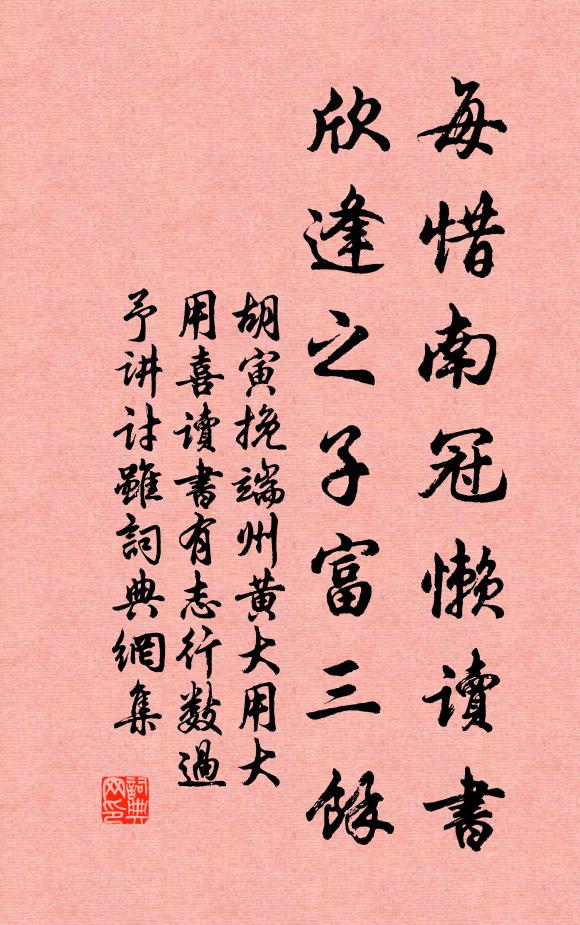 每惜南冠懒讀書
欣逢之子富三餘
胡寅挽端州黄大用大
用喜讀書有志行数過
予讲討雖詞典網集
詞典网印